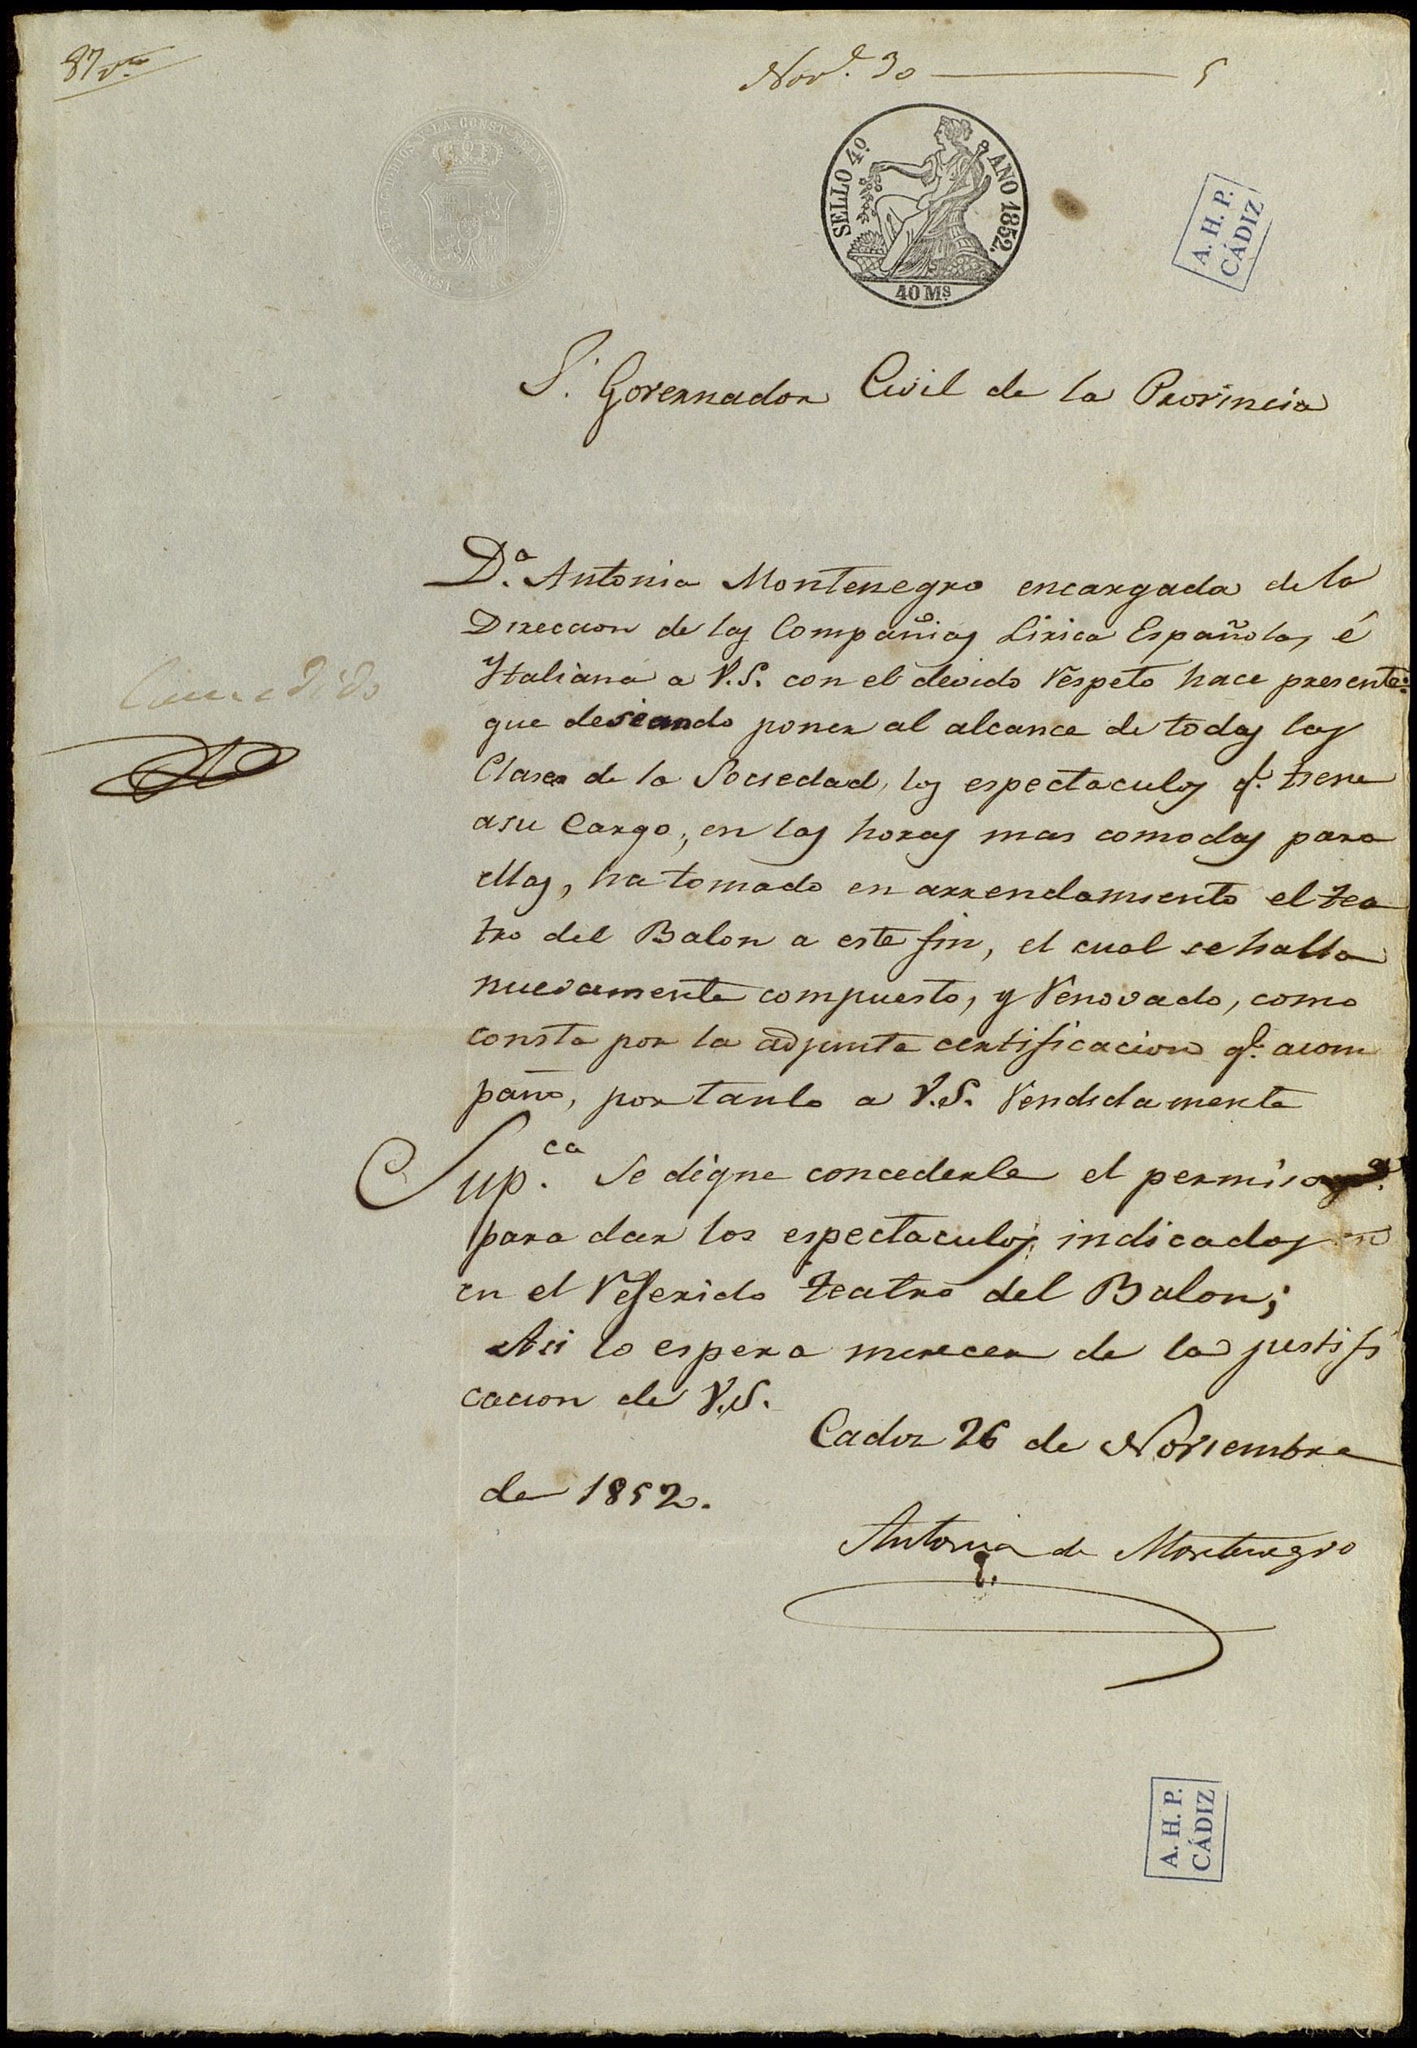 87 vta
Nov.e 30 5
SELLO 4º. AÑO 1852.
40 Ms
A. H. P.
CÁDIZ
S.r Governador Civil de la Provincia
D.a Antonia Montenegro encargada de la
Direccion de las Compañias Lirica Española, é
Ytaliana a V.S. con el devido respeto hace presente:
que deseando poner al alcance de todas las
Clases de la Sociedad, los espectaculos q.e tiene
a su Cargo, en las horas mas comodas para
ellas, ha tomado en arrendamiento el tea
tro del Balon a este fin, el cual se halla
nuevamente compuesto, y renovado, como
consta por la adjunta certificacion q.e acom
paño, por tanto a V.S. rendidamente
Sup.ca se digne concederle el permiso
para dar los espectaculos indicados
en el referido teatro del Balon;
Asi lo espera merecer de la justifi
cacion de V.S.
Cadiz 26 de Noviembre
de 1852.
Antonia de Montenegro
Concedido
A. H. P.
CÁDIZ